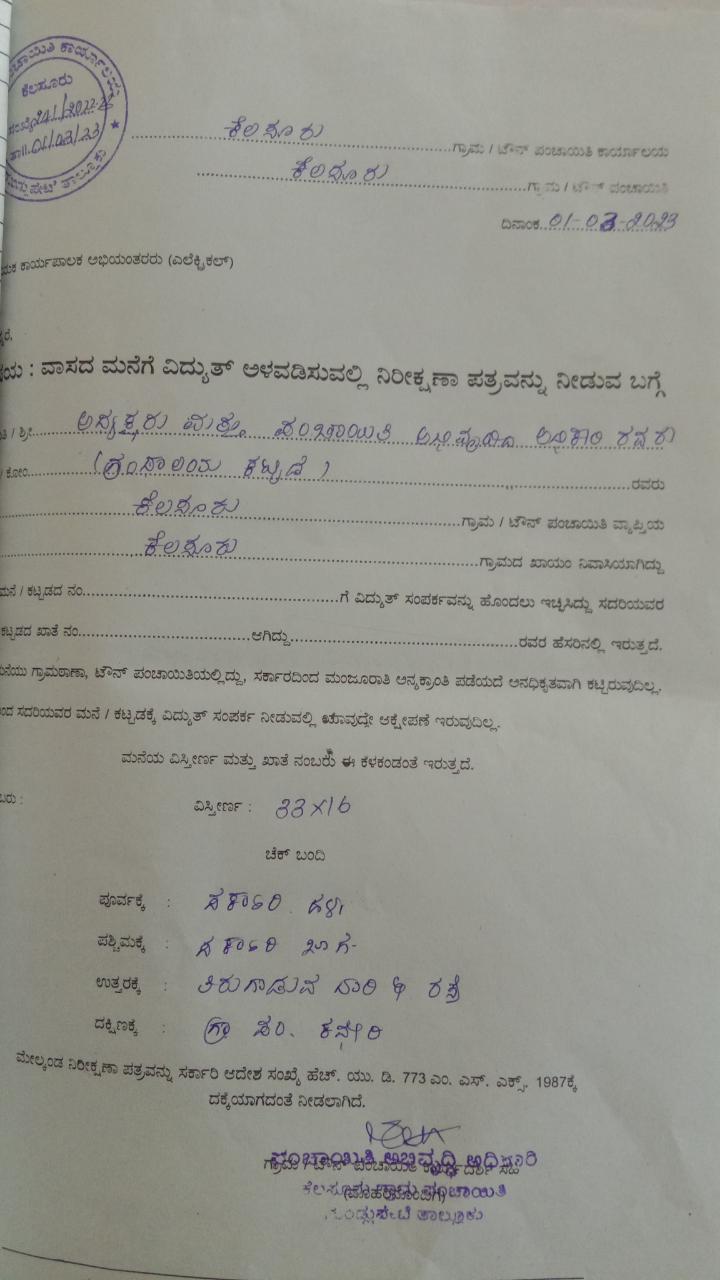 ಕೆಲಸೂರು
241/2022-23
ತಾ॥ 01/03/23
ತಾಲ್ಲೂಕು
ಕೆಲಸೂರು ಗ್ರಾಮ / ಟೌನ್ ಪಂಚಾಯಿತಿ ಕಾರ್ಯಾಲಯ
ಕೆಲಸೂರು ಗ್ರಾಮ / ಟೌನ್ ಪಂಚಾಯಿತಿ
ದಿನಾಂಕ 01-03-2023
ಕಾರ್ಯಪಾಲಕ ಅಭಿಯಂತರರು (ಎಲೆಕ್ಟ್ರಿಕಲ್)
: ವಾಸದ ಮನೆಗೆ ವಿದ್ಯುತ್ ಅಳವಡಿಸುವಲ್ಲಿ ನಿರೀಕ್ಷಣಾ ಪತ್ರವನ್ನು ನೀಡುವ ಬಗ್ಗೆ
/ ಶ್ರೀ ಅಧ್ಯಕ್ಷರು ಮತ್ತು ಪಂಚಾಯಿತಿ ಅಭಿವೃದ್ಧಿ ಅಧಿಕಾರಿ ರವರು
/ ಕೋಂ (ಗ್ರಂಥಾಲಯ ಕಟ್ಟಡ) ರವರು
ಕೆಲಸೂರು ಗ್ರಾಮ / ಟೌನ್ ಪಂಚಾಯಿತಿ ವ್ಯಾಪ್ತಿಯ
ಕೆಲಸೂರು ಗ್ರಾಮದ ಖಾಯಂ ನಿವಾಸಿಯಾಗಿದ್ದು
ಮನೆ / ಕಟ್ಟಡದ ನಂ. ಗೆ ವಿದ್ಯುತ್ ಸಂಪರ್ಕವನ್ನು ಹೊಂದಲು ಇಚ್ಛಿಸಿದ್ದು ಸದರಿಯವರ
ಕಟ್ಟಡದ ಖಾತೆ ನಂ. ಆಗಿದ್ದು ರವರ ಹೆಸರಿನಲ್ಲಿ ಇರುತ್ತದೆ.
ಗ್ರಾಮಠಾಣಾ, ಟೌನ್ ಪಂಚಾಯಿತಿಯಲ್ಲಿದ್ದು, ಸರ್ಕಾರದಿಂದ ಮಂಜೂರಾತಿ ಅನ್ಯಕ್ರಾಂತಿ ಪಡೆಯದೆ ಅನಧಿಕೃತವಾಗಿ ಕಟ್ಟಿರುವುದಿಲ್ಲ.
ಸದರಿಯವರ ಮನೆ / ಕಟ್ಟಡಕ್ಕೆ ವಿದ್ಯುತ್ ಸಂಪರ್ಕ ನೀಡುವಲ್ಲಿ ಯಾವುದೇ ಆಕ್ಷೇಪಣೆ ಇರುವುದಿಲ್ಲ.
ಮನೆಯ ವಿಸ್ತೀರ್ಣ ಮತ್ತು ಖಾತೆ ನಂಬರು ಈ ಕೆಳಕಂಡಂತೆ ಇರುತ್ತದೆ.
ವಿಸ್ತೀರ್ಣ : 33×16
ಚೆಕ್ ಬಂದಿ
ಪೂರ್ವಕ್ಕೆ : ಸರ್ಕಾರಿ ಹಳ್ಳ
ಪಶ್ಚಿಮಕ್ಕೆ : ಸರ್ಕಾರಿ ಜಾಗ
ಉತ್ತರಕ್ಕೆ : ತಿರುಗಾಡುವ ದಾರಿ & ರಸ್ತೆ
ದಕ್ಷಿಣಕ್ಕೆ : ಗ್ರಾ ಪಂ. ಕಛೇರಿ
ಮೇಲ್ಕಂಡ ನಿರೀಕ್ಷಣಾ ಪತ್ರವನ್ನು ಸರ್ಕಾರಿ ಆದೇಶ ಸಂಖ್ಯೆ ಹೆಚ್. ಯು. ಡಿ. 773 ಎಂ. ಎಸ್. ಎಕ್ಸ್. 1987ಕ್ಕೆ
ದಕ್ಕೆಯಾಗದಂತೆ ನೀಡಲಾಗಿದೆ.
ಪಂಚಾಯಿತಿ ಅಭಿವೃದ್ಧಿ ಅಧಿಕಾರಿ
ಕೆಲಸೂರು ಗ್ರಾಮ ಪಂಚಾಯಿತಿ
ಗುಂಡ್ಲುಪೇಟೆ ತಾಲ್ಲೂಕು